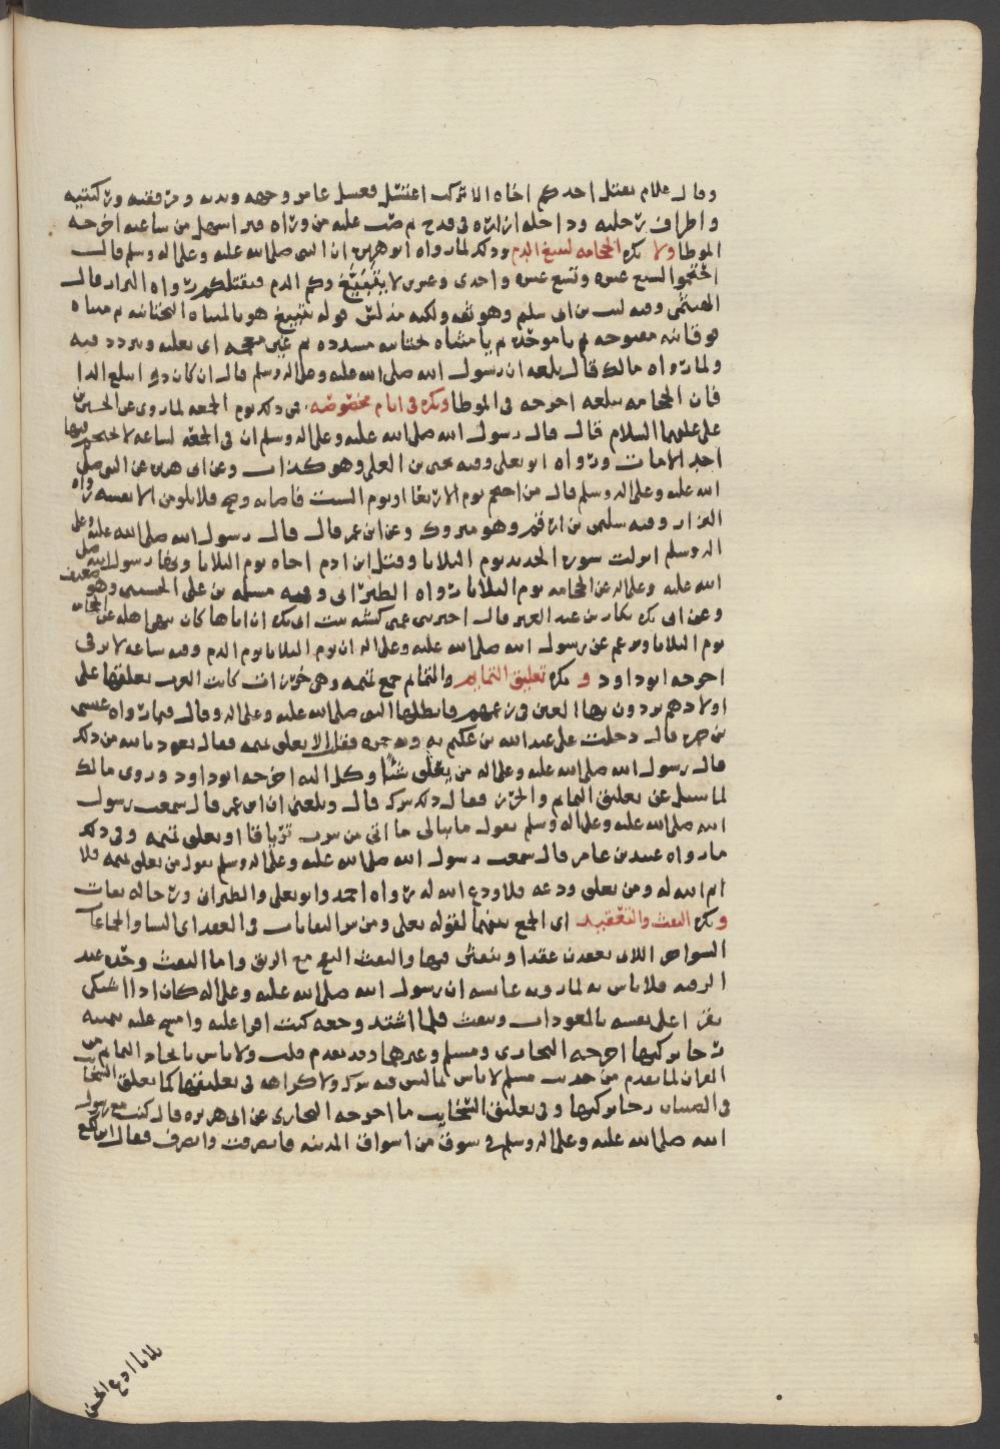 وقال علام يقتل احدكم اخاه الا تركت اغتسل فغسل عامر وجهه ويديه ومرفقيه وركبتيه
واطراف رجليه وداخله ازاره في قدح ثم صب عليه من وراه فبر اسهل من ساعته اخرجه
الموطا ولا تكره الحجامه لتبيغ الدم وذلك لما رواه ابو هريره ان النبي صلى الله عليه وعلى اله وسلم قال
احتجموا لسبع عشره وتسع عشره واحدى وعشرين لا يتبيغ بكم الدم فيقتلكم رواه البزار قال
الهيثمي وفيه ليث بن ابي سليم وهو ثقه ولكنه مدلس قوله يتبيغ هو بالمثناه التحتانيه ثم مثناه
فوقانيه مفتوحه ثم با موحده ثم يا مثناه تحتانيه مشدده ثم غين معجمه اي يغلبه ويتردد فيه
ولما رواه مالك قال بلغه ان رسول الله صلى الله عليه وعلى اله وسلم قال ان كان دوا يبلغ الدا
فان الحجامه تبلغه اخرجه في الموطا وتكره في ايام مخصوصه من ذلك يوم الجمعه لما روي عن الحسين بن
علي عليهما السلام قال قال رسول الله صلى الله عليه وعلى اله وسلم ان في الجمعه لساعه لا يحتجم فيها
احد الا مات ورواه ابو يعلى وفيه يحيى بن العلى وهو كذاب وعن ابي هريره عن النبي صلى
الله عليه وعلى اله وسلم قال من احتجم يوم الاربعا او يوم السبت فاصابه وضح فلا يلومن الا نفسه رواه
البزار وفيه سليمن بن ارقم وهو متروك وعن ابن عمر قال قال رسول الله صلى الله عليه وعلى
اله وسلم انزلت سورة الحديد يوم الثلاثا وقتل ابن ادم اخاه يوم الثلاثا ونها رسول الله صلى
الله عليه وعلى اله عن الحجامه يوم الثلاثا رواه الطبراني وفيه مسلمه بن علي الخشني وهو ضعيف
وعن ابي بكره بكار بن عبد العزيز قال اخبرتني عمتي كبشه بنت ابي بكره ان اباها كان ينهى اهله عن الحجامه
يوم الثلاثا ويزعم عن رسول الله صلى الله عليه وعلى اله ان يوم الثلاثا يوم الدم وفيه ساعه لا يرقى
اخرجه ابو داود و تكره تعليق التمايم والتمايم جمع تميمه وهي خرزات كانت العرب يعلقنها على
اولادهم يردون بها العين في زعمهم فابطلها النبي صلى الله عليه وعلى اله وقال فيما رواه عيسى
بن حمزه قال دخلت على عبد الله بن عكيم وبه حمره فقلت الا تعلق تميمه فقال نعوذ بالله من ذلك
قال رسول الله صلى الله عليه وعلى اله من تعلق شيئا وكل اليه اخرجه ابو داود وروى مالك
لما سئل عن تعليق التمايم والخرز فقال ذلك شرك قال وبلغني ان ابن عمر قال سمعت رسول
الله صلى الله عليه وعلى اله وسلم يقول ما يبالي ما اتى من شرب ترياقا او تعلق تميمه وفي ذلك
ما رواه عقبه بن عامر قال سمعت رسول الله صلى الله عليه وعلى اله وسلم يقول من تعلق تميمه فلا
اتم الله له ومن تعلق ودعه فلا ودع الله له رواه احمد وابو يعلى والطبراني ورجاله ثقات
وتكره النفث والتعقيد اي الجمع بينهما لقوله تعلى ومن شر النفاثات في العقد اي النسا والجماعات
السواحر اللاتي يعقدن عقدا وينفثن فيها والنفث النفخ مع الريق واما النفث وحده عند
الرقيه فلا باس به لما روته عائشه ان رسول الله صلى الله عليه وعلى اله كان اذا اشتكى
يقرا على نفسه بالمعوذات وينفث فلما اشتد وجعه كنت اقرا عليه وامسح عليه بيمينه
رجا بركتها اخرجه البخاري ومسلم وغيرهما وقد تقدم قلت ولا باس باتخاذ التمايم من
القران لما تقدم من حديث مسلم لا باس بما ليس فيه شرك ولا كراهه في تعليقها كما تعلق السخاب
في الصبيان رجا بركتها وفي تعليق السخاب ما اخرجه البخاري عن ابي هريره قال كنت مع رسول
الله صلى الله عليه وعلى اله وسلم في سوق من اسواق المدينه فانصرف وانصرفت فقال اين لكع
ثلاثا ادع الحسن